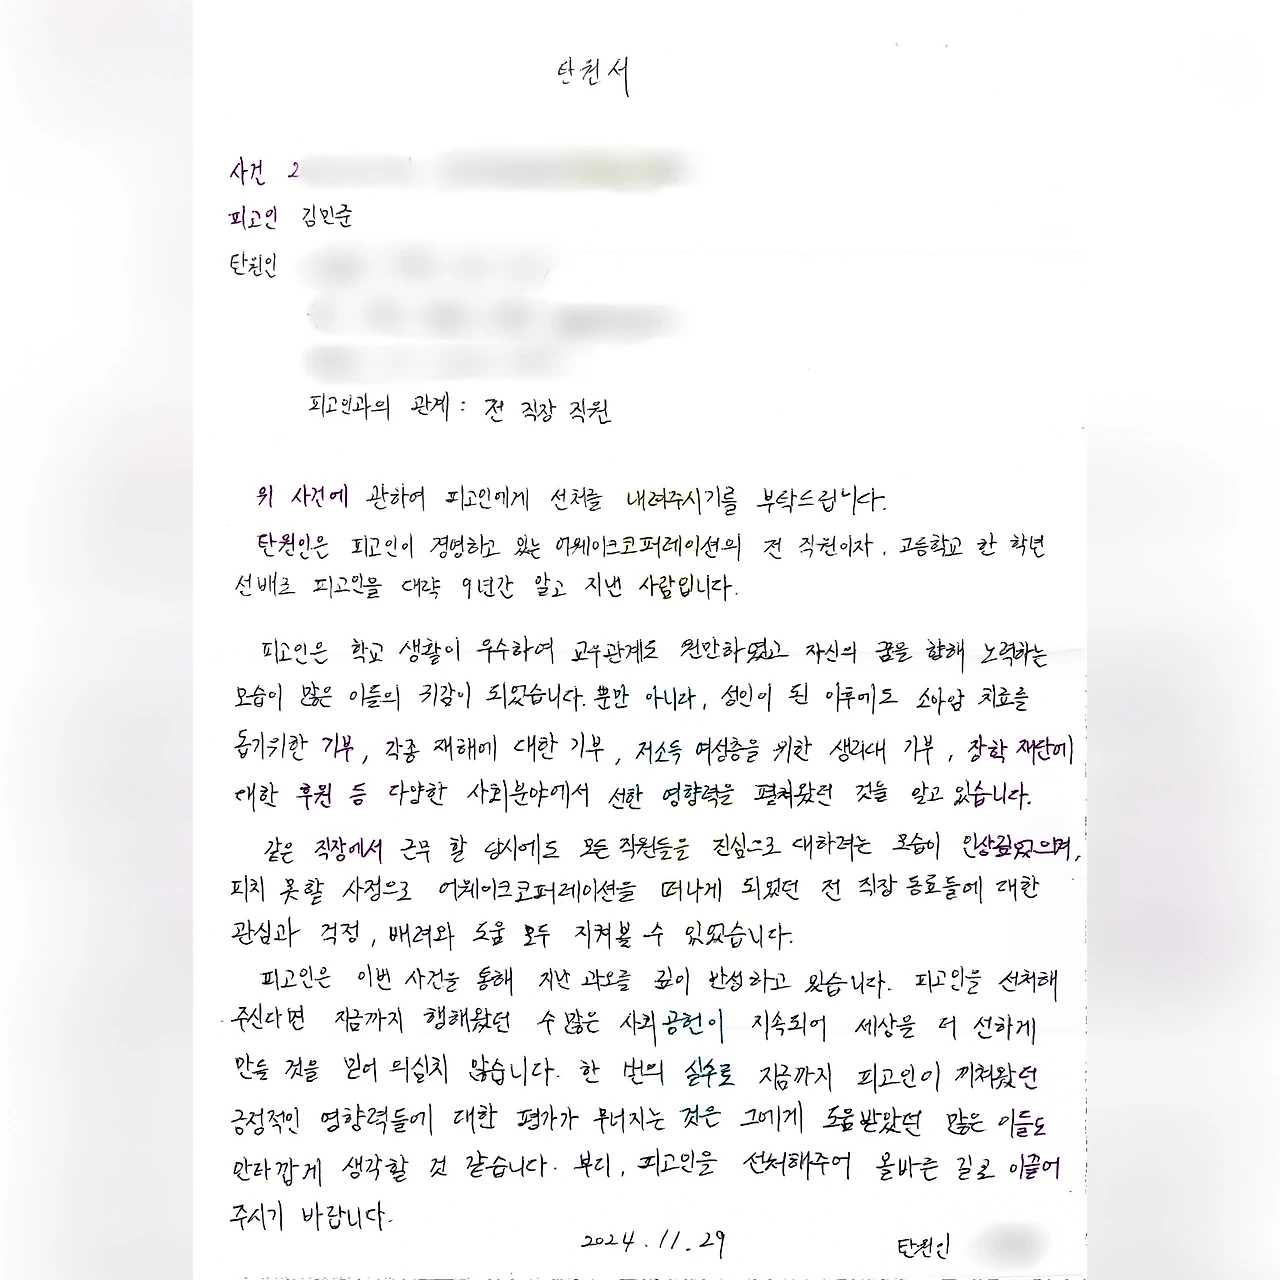 탄원서
사건 2
피고인 김민준
탄원인
피고인과의 관계 : 전 직장 직원
위 사건에 관하여 피고인에게 선처를 내려주시기를 부탁드립니다.
탄원인은 피고인이 경영하고 있는 어웨이크코퍼레이션의 전 직원이자, 고등학교 한 학년
선배로 피고인을 대략 9년간 알고 지낸 사람입니다.
피고인은 학교 생활이 우수하여 교우관계도 원만하였고 자신의 꿈을 향해 노력하는
모습이 많은 이들의 귀감이 되었습니다. 뿐만 아니라, 성인이 된 이후에도 소아암 치료를
돕기위한 기부, 각종 재해에 대한 기부, 저소득 여성층을 위한 생리대 기부, 장학 재단에
대한 후원 등 다양한 사회분야에서 선한 영향력을 펼쳐왔던 것을 알고 있습니다.
같은 직장에서 근무 할 당시에도 모든 직원들을 진심으로 대하려는 모습이 인상깊었으며,
피치 못할 사정으로 어웨이크코퍼레이션을 떠나게 되었던 전 직장 동료들에 대한
관심과 걱정, 배려와 도움 모두 지켜볼 수 있었습니다.
피고인은 이번 사건을 통해 지난 과오를 깊이 반성하고 있습니다. 피고인을 선처해
주신다면 지금까지 행해왔던 수 많은 사회 공헌이 지속되어 세상을 더 선하게
만들 것을 믿어 의심치 않습니다. 한 번의 실수로 지금까지 피고인이 끼쳐왔던
긍정적인 영향력들에 대한 평가가 무너지는 것은 그에게 도움받았던 많은 이들도
안타깝게 생각할 것 같습니다. 부디, 피고인을 선처해주어 올바른 길로 이끌어
주시기 바랍니다.
2024.11.29 탄원인